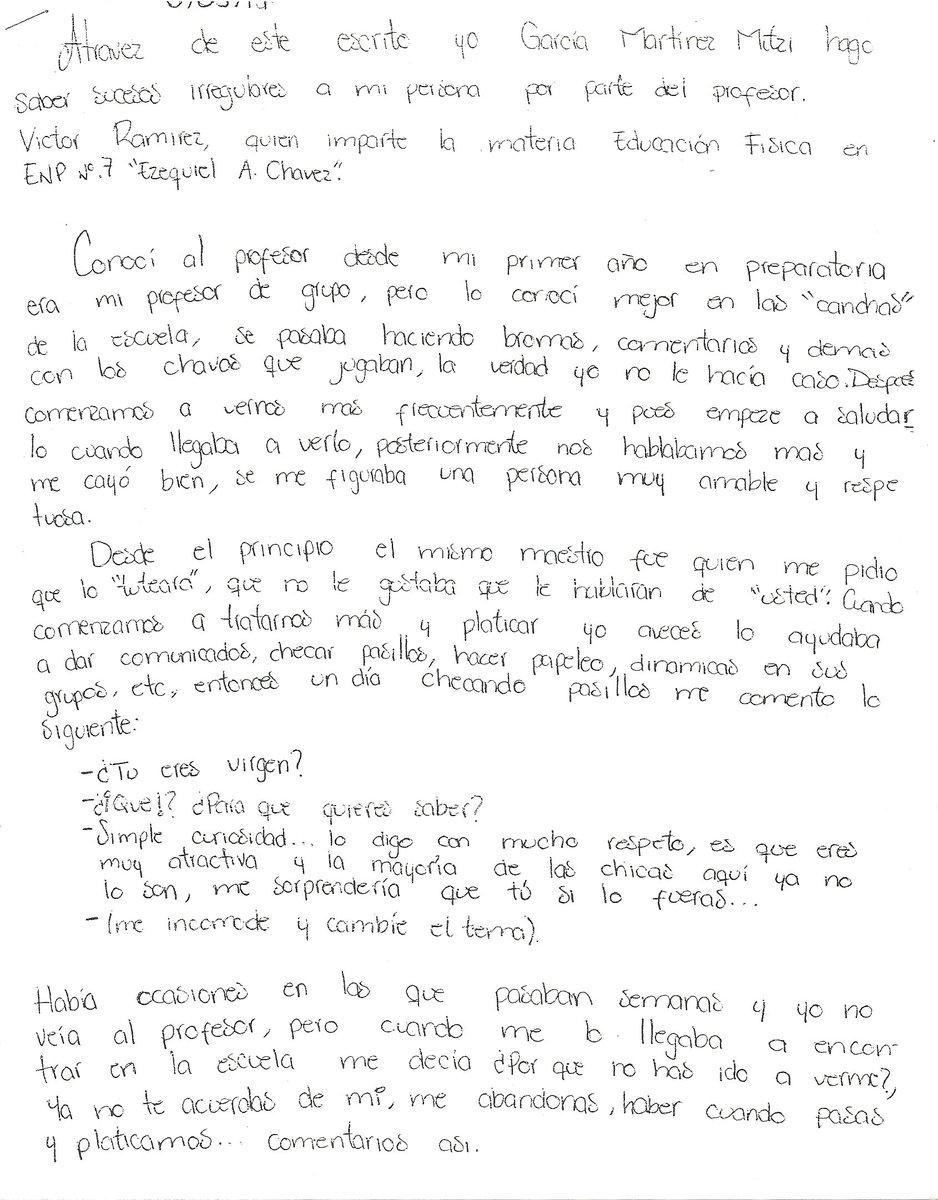 Atravez de este escrito yo García Martínez Mitzi hago
saber sucesos irregulares a mi persona por parte del profesor.
Victor Ramirez, quien imparte la materia Educación Fisica en
ENP Nº.7 "Ezequiel A. Chavez".
Conocí al profesor desde mi primer año en preparatoria
era mi profesor de grupo, pero lo conocí mejor en las "canchas"
de la escuela, se pasaba haciendo bromas, comentarios y demas
con los chavos que jugaban, la verdad yo no le hacía caso. Despues
comenzamos a vernos mas frecuentemente y pues empeze a saludar
lo cuando llegaba a verlo, posteriormente nos hablabamos mas y
me cayó bien, se me figuraba una persona muy amable y respe
tuosa.
Desde el principio el mismo maestro fue quien me pidio
que lo "tuteara", que no le gustaba que le hablaran de "usted". Cuando
comenzamos a tratarnos más y platicar yo aveces lo ayudaba
a dar comunicados, checar pasillos, hacer papeleo, dinamicas en sus
grupos, etc, entonces un día checando pasillos me comento lo
siguiente:
-¿Tu eres virgen?
-¿¡Que!? ¿Para que quieres saber?
-Simple curiosidad... lo digo con mucho respeto, es que eres
muy atractiva y la mayoría de las chicas aquí ya no
lo son, me sorprendería que tú si lo fueras...
-(me incomode y cambie el tema).
Había ocasiones en las que pasaban semanas y yo no
veía al profesor, pero cuando me lo llegaba a encon-
trar en la escuela me decía ¿Por que no has ido a verme?,
Ya no te acuerdas de mi, me abandonas, haber cuando pasas
y platicamos... comentarios asi.